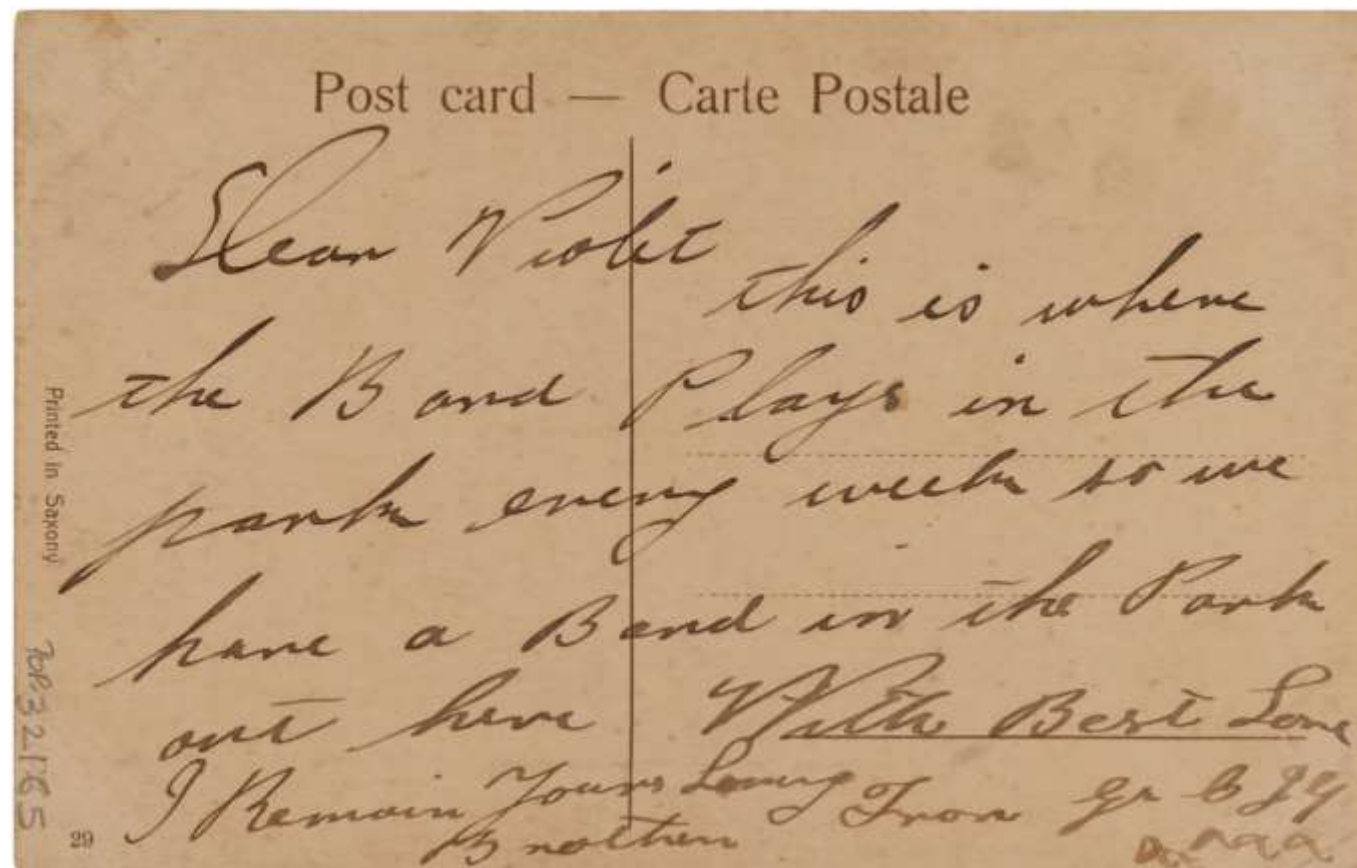 Post card — Carte Postale
Dear Violet
this is where
the Band Plays in the
park every week so we
have a Band in the Park
out here With Best Love
I Remain Yours Loving From
Brother
Printed in Saxony
29